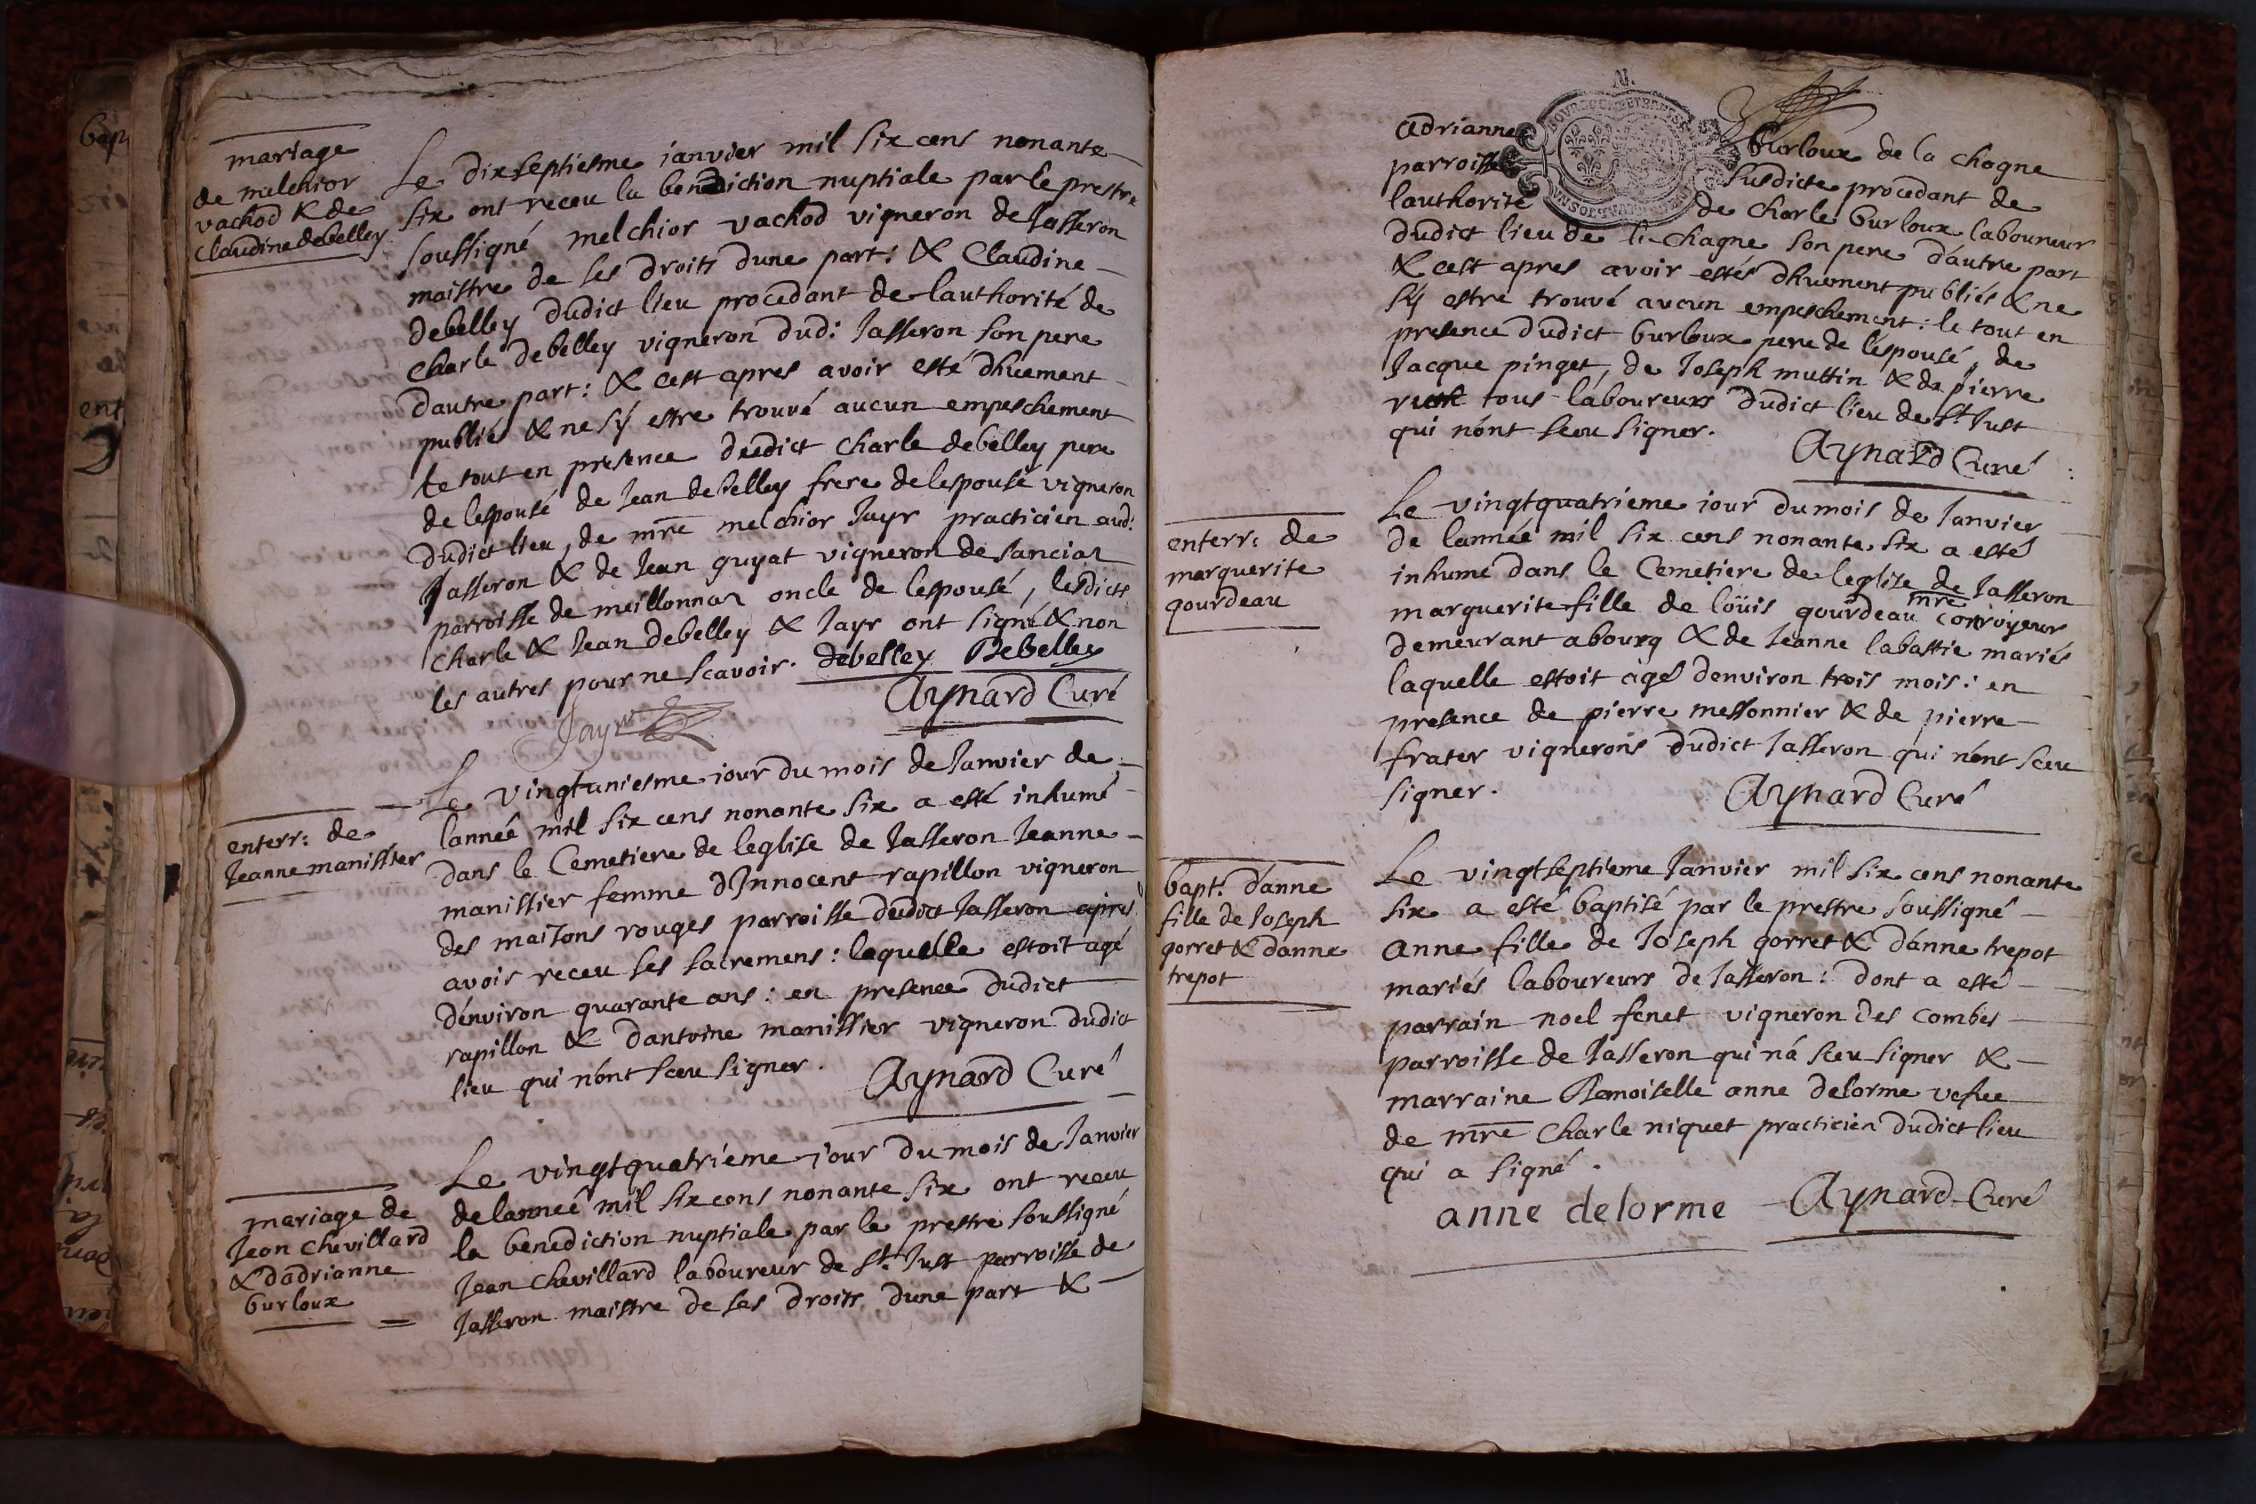 mariage
de melchior
vachod & de
claudine debelley
Le dixseptiesme janvier mil six cens nonante
six ont receu la benediction nuptiale par le prestre
soussigné melchior vachod vigneron de Jasseron
maistre de ses droits dune part: & Claudine
debelley dudict lieu procedant de lauthorité de
Charle debelley vigneron dud: Jasseron son pere
dautre part: & cest apres avoir esté dhuement
publié & ne sÿ estre trouvé aucun empeschement
le tout en presence dudict charle debelley pere
de lespousé de Jean debelley frere de lespousé vigneron
dudict lieu, de mre melchior Jayr practicien aud:
Jasseron & de Jean guyat vigneron de sanciaz
parroisse de meillonnaz oncle de lespousé, lesdicts
charle & Jean debelley & Jayr ont signé & non
les autres pour ne scavoir. debelley Debelley
Jayr Aynard Curé
enterr: de
Jeanne manissier
Le vingtuniesme jour du mois de Janvier de
lanneé mil six cens nonante six a esté inhumé
dans le Cemetiere de leglise de Jasseron Jeanne
manissier femme dInnocent rapillon vigneron
des maisons rouges parroisse dudict Jasseron apres
avoir receu ses sacremens: laquelle estoit agé
dénviron quarante ans: en presence dudict
rapillon & dantoine manissier vigneron dudict
lieu qui nónt sceu signer. Aynard Curé
mariage de
Jean chevillard
& dadrianne
burloux
Le vingtquatriéme jour du mois de Janvier
de lanneé mil six cens nonante six ont receu
la benediction nuptiale par le prestre soussigné
Jean chevillard laboureur de St. Just parroisse de
Jasseron maistre de ses droits dune part &
adrianne burloux de la chagne
parroisse susdicte procedant de
lauthorité de charle burloux laboureur
dudict lieu de la chagne son pere dáutre part
& cest apres avoir estés dhuement publiés & ne
sÿ estre trouvé aucun empeschement: le tout en
presence dudict burloux pere de léspousé, de
Jacque pinget, de Joseph muttin & de pierre
tous laboureurs dudict lieu de St. Just
qui nónt sceu signer. Aynard Curé
enterr: de
marguerite
gourdeau
Le vingtquatrieme jour du mois de Janvier
de lanneé mil six cens nonante six a esté
inhumé dans le Cemetiere de leglise de Jasseron
marguerite fille de loüis gourdeau mre corroyeur
demeurant a bourg & de Jeanne labastie mariés
laquelle estoit agé denviron trois mois: en
presence de pierre messonnier & de pierre
frater vignerons dudict Jasseron qui nónt sceu
signer. Aynard Curé
bapt: dánne
fille de Joseph
gorret & danne
trepot
Le vingtseptieme Janvier mil six cens nonante
six a esté baptisé par le prestre soussigné
anne fille de Joseph gorret & dánne trepot
mariés laboureurs de Jasseron: dont a esté
parrain noel fenet vigneron des combes
parroisse de Jasseron qui ná sceu signer &
marraine Damoiselle anne delorme vefve
de mre Charle niquet practicien dudict lieu
qui a signé.
anne delorme Aynard Curé